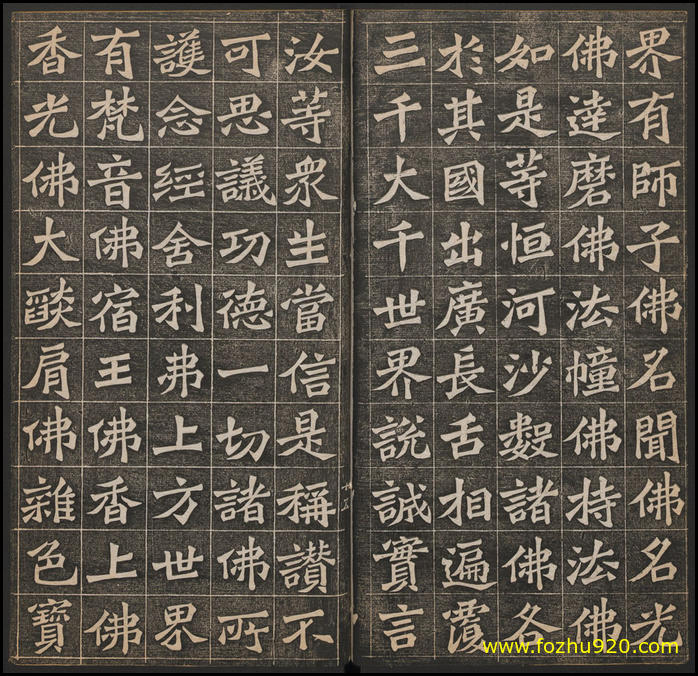 界有師子佛名聞佛名光
佛達磨佛法幢佛持法佛
如是等恒河沙數諸佛各
於其國出廣長舌相遍覆
三千大千世界說誠實言
汝等衆生當信是稱讚不
可思議功德一切諸佛所
護念經舍利弗上方世界
有梵音佛宿王佛香上佛
香光佛大燄肩佛雜色寶
十五
www.fozhu920.com